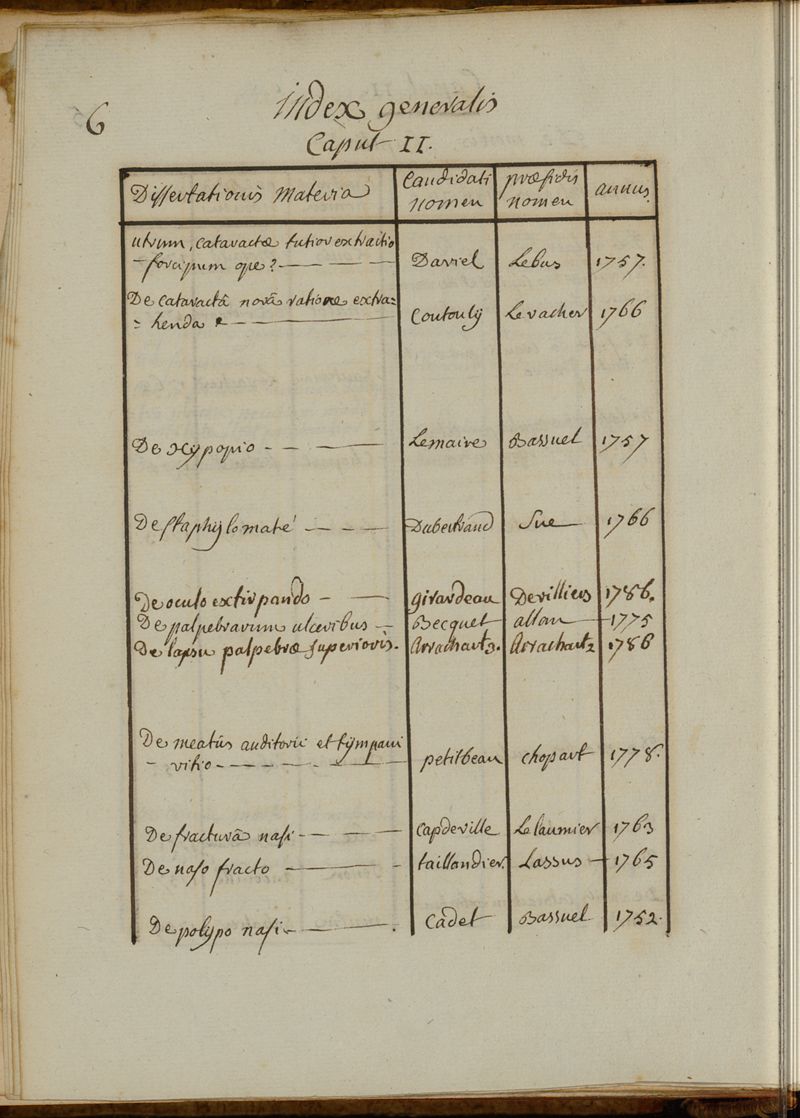 6
Index generalis
Caput II.
Dissertationis Materia | Candidati nomen | præsidis nomen | annus.
utrum, cataractæ tutior extractio
- forcipum ope? - - - - Daviel | Lebas | 1757.
De cataractâ novâ ratione extra=
= henda - Coutouly | Levacher | 1766
De hypopio - - - Lemaire | Bassuel | 1757
De staphylomate - - - Dubertrand | Sue | 1766
De oculo extirpando - - Girardeau | Devilliers | 1786.
De palpebrarum ulceribus - Becquet | allan - 1775
De lapsu palpebræ superioris. Arrachartz. | Arrachartz | 1786
De meatûs auditorii et tympani
- vitio - - - - - petitbeau | chopart | 1778.
De fracturâ nasi - - - Capdeville | Lelaumier | 1763
De naso fracto - - taillandier. | Lassus - 1765
De polypo nasi - - . Cadet | Bassuel | 1752.